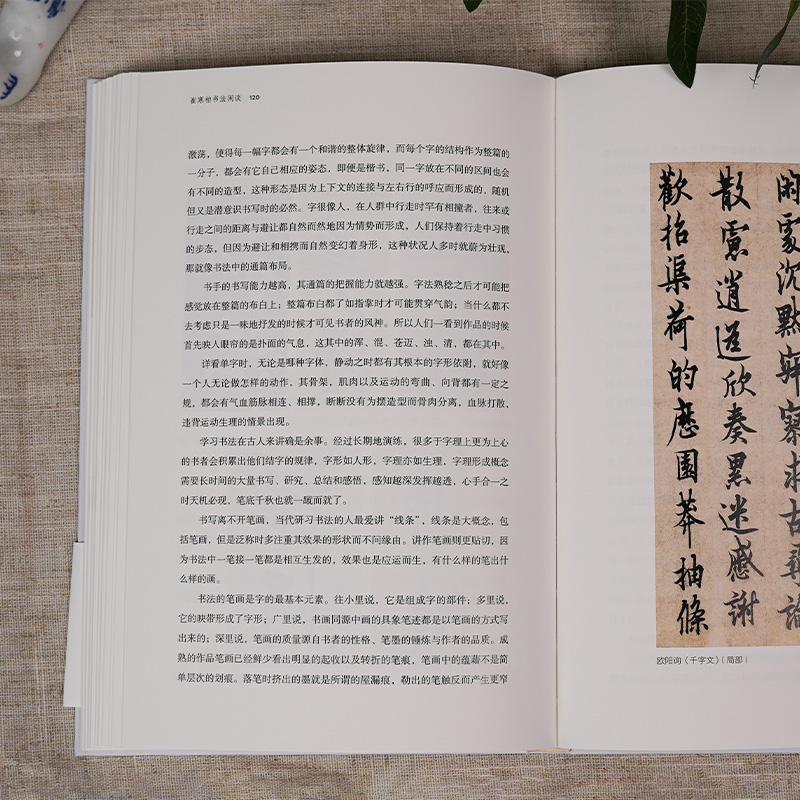 崔寒柏书法闲谈 120
激荡，使得每一幅字都会有一个和谐的整体旋律，而每个字的结构作为整篇的
一分子，都会有它自己相应的姿态，即便是楷书，同一字放在不同的区间也会
有不同的造型，这种形态是因为上下文的连接与左右行的呼应而形成的，随机
但又是潜意识书写时的必然。字很像人，在人群中行走时罕有相撞者，往来或
行走之间的距离与避让都自然而然地因为情势而形成，人们保持着行走中习惯
的步态，但因为避让和相携而自然变幻着身形，这种状况人多时就蔚为壮观，
那就像书法中的通篇布局。
书手的书写能力越高，其通篇的把握能力就越强。字法熟稔之后才可能把
感觉放在整篇的布白上；整篇布白都了如指掌时才可能贯穿气韵；当什么都不
去考虑只是一味地抒发的时候才可见书者的风神。所以人们一看到作品的时候
首先映入眼帘的是扑面的气息，这其中的浑、混、苍迈、浊、清，都在其中。
详看单字时，无论是哪种字体，静动之时都有其根本的字形依附，就好像
一个人无论做怎样的动作，其骨架，肌肉以及运动的弯曲、向背都有一定之
规，都会有气血筋脉相连、相撑，断断没有为摆造型而骨肉分离，血脉打散，
违背运动生理的情景出现。
学习书法在古人来讲确是余事。经过长期地演练，很多于字理上更为上心
的书者会积累出他们结字的规律，字形如人形，字理亦如生理，字理形成概念
需要长时间的大量书写、研究、总结和感悟，感知越深发挥越透，心手合一之
时天机必现，笔底千秋也就一蹴而就了。
书写离不开笔画，当代研习书法的人最爱讲“线条”，线条是大概念，包
括笔画，但是泛称时多注重其效果的形状而不问缘由。讲作笔画则更贴切，因
为书法中一笔接一笔都是相互生发的，效果也是应运而生，有什么样的笔出什
么样的画。
书法的笔画是字的最基本元素。往小里说，它是组成字的部件；多里说，
它的映带形成了字形；广里说，书画同源中画的具象笔迹都是以笔画的方式写
出来的；深里说，笔画的质量源自书者的性格、笔墨的锤炼与作者的品质。成
熟的作品笔画已经鲜少看出明显的起收以及转折的笔痕，笔画中的蕴藉不是简
单层次的划痕。落笔时挤出的墨就是所谓的屋漏痕，勒出的笔触反而产生更窄
閑處沉默寂寥求古尋論
散慮逍遥欣奏累遣感謝
歡招渠荷的歷園莽抽條
欧阳询《千字文》（局部）